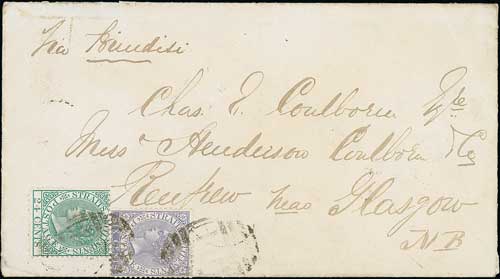 via Brindisi
Chas. E. Coulborn Esqre
Messrs Henderson Coulborn & Co
Renfrew near Glasgow
N B
STRAITS SETTLEMENTS POSTAGE
24 CENTS
STRAITS